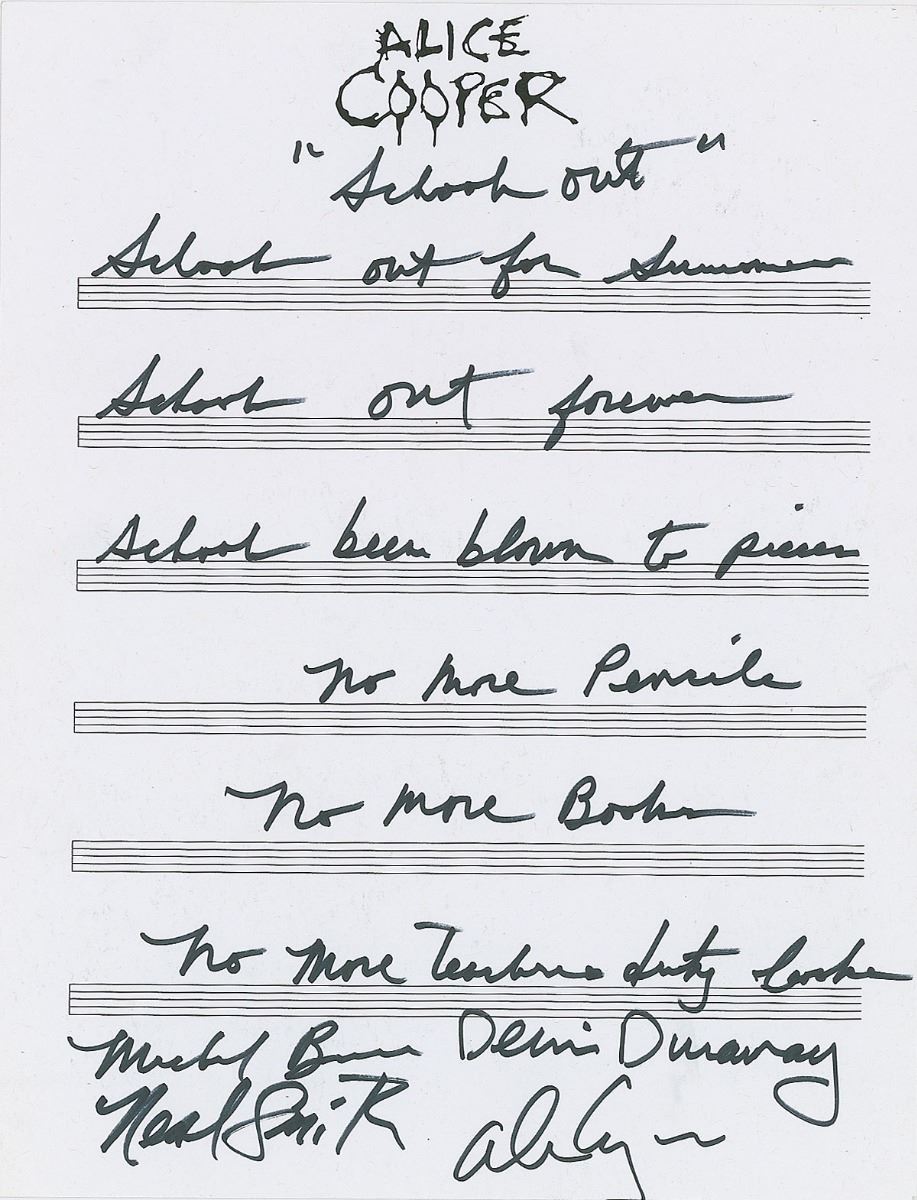 ALICE
COOPER
"School out"
School out for Summer
School out forever
School been blown to pieces
No more Pencils
No More Books
No More Teachers dirty looks
Michael Bruce Dennis Dunaway
Neal Smith Alice Cooper